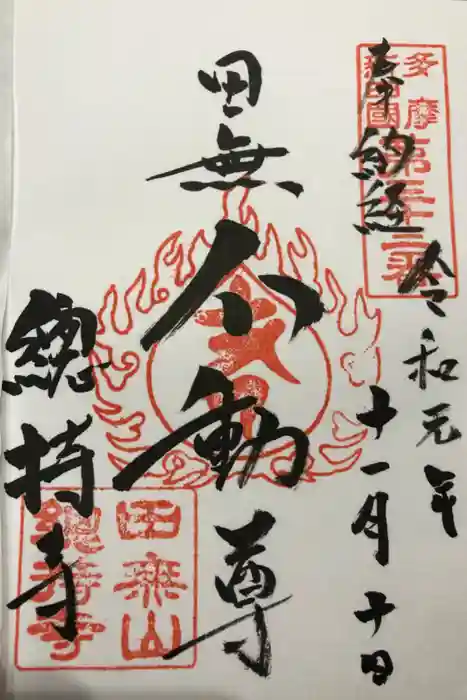 奉納経
令和元年
十一月十日
田無不動尊
總持寺
多摩
四国
第三十三番
田無山
總持寺